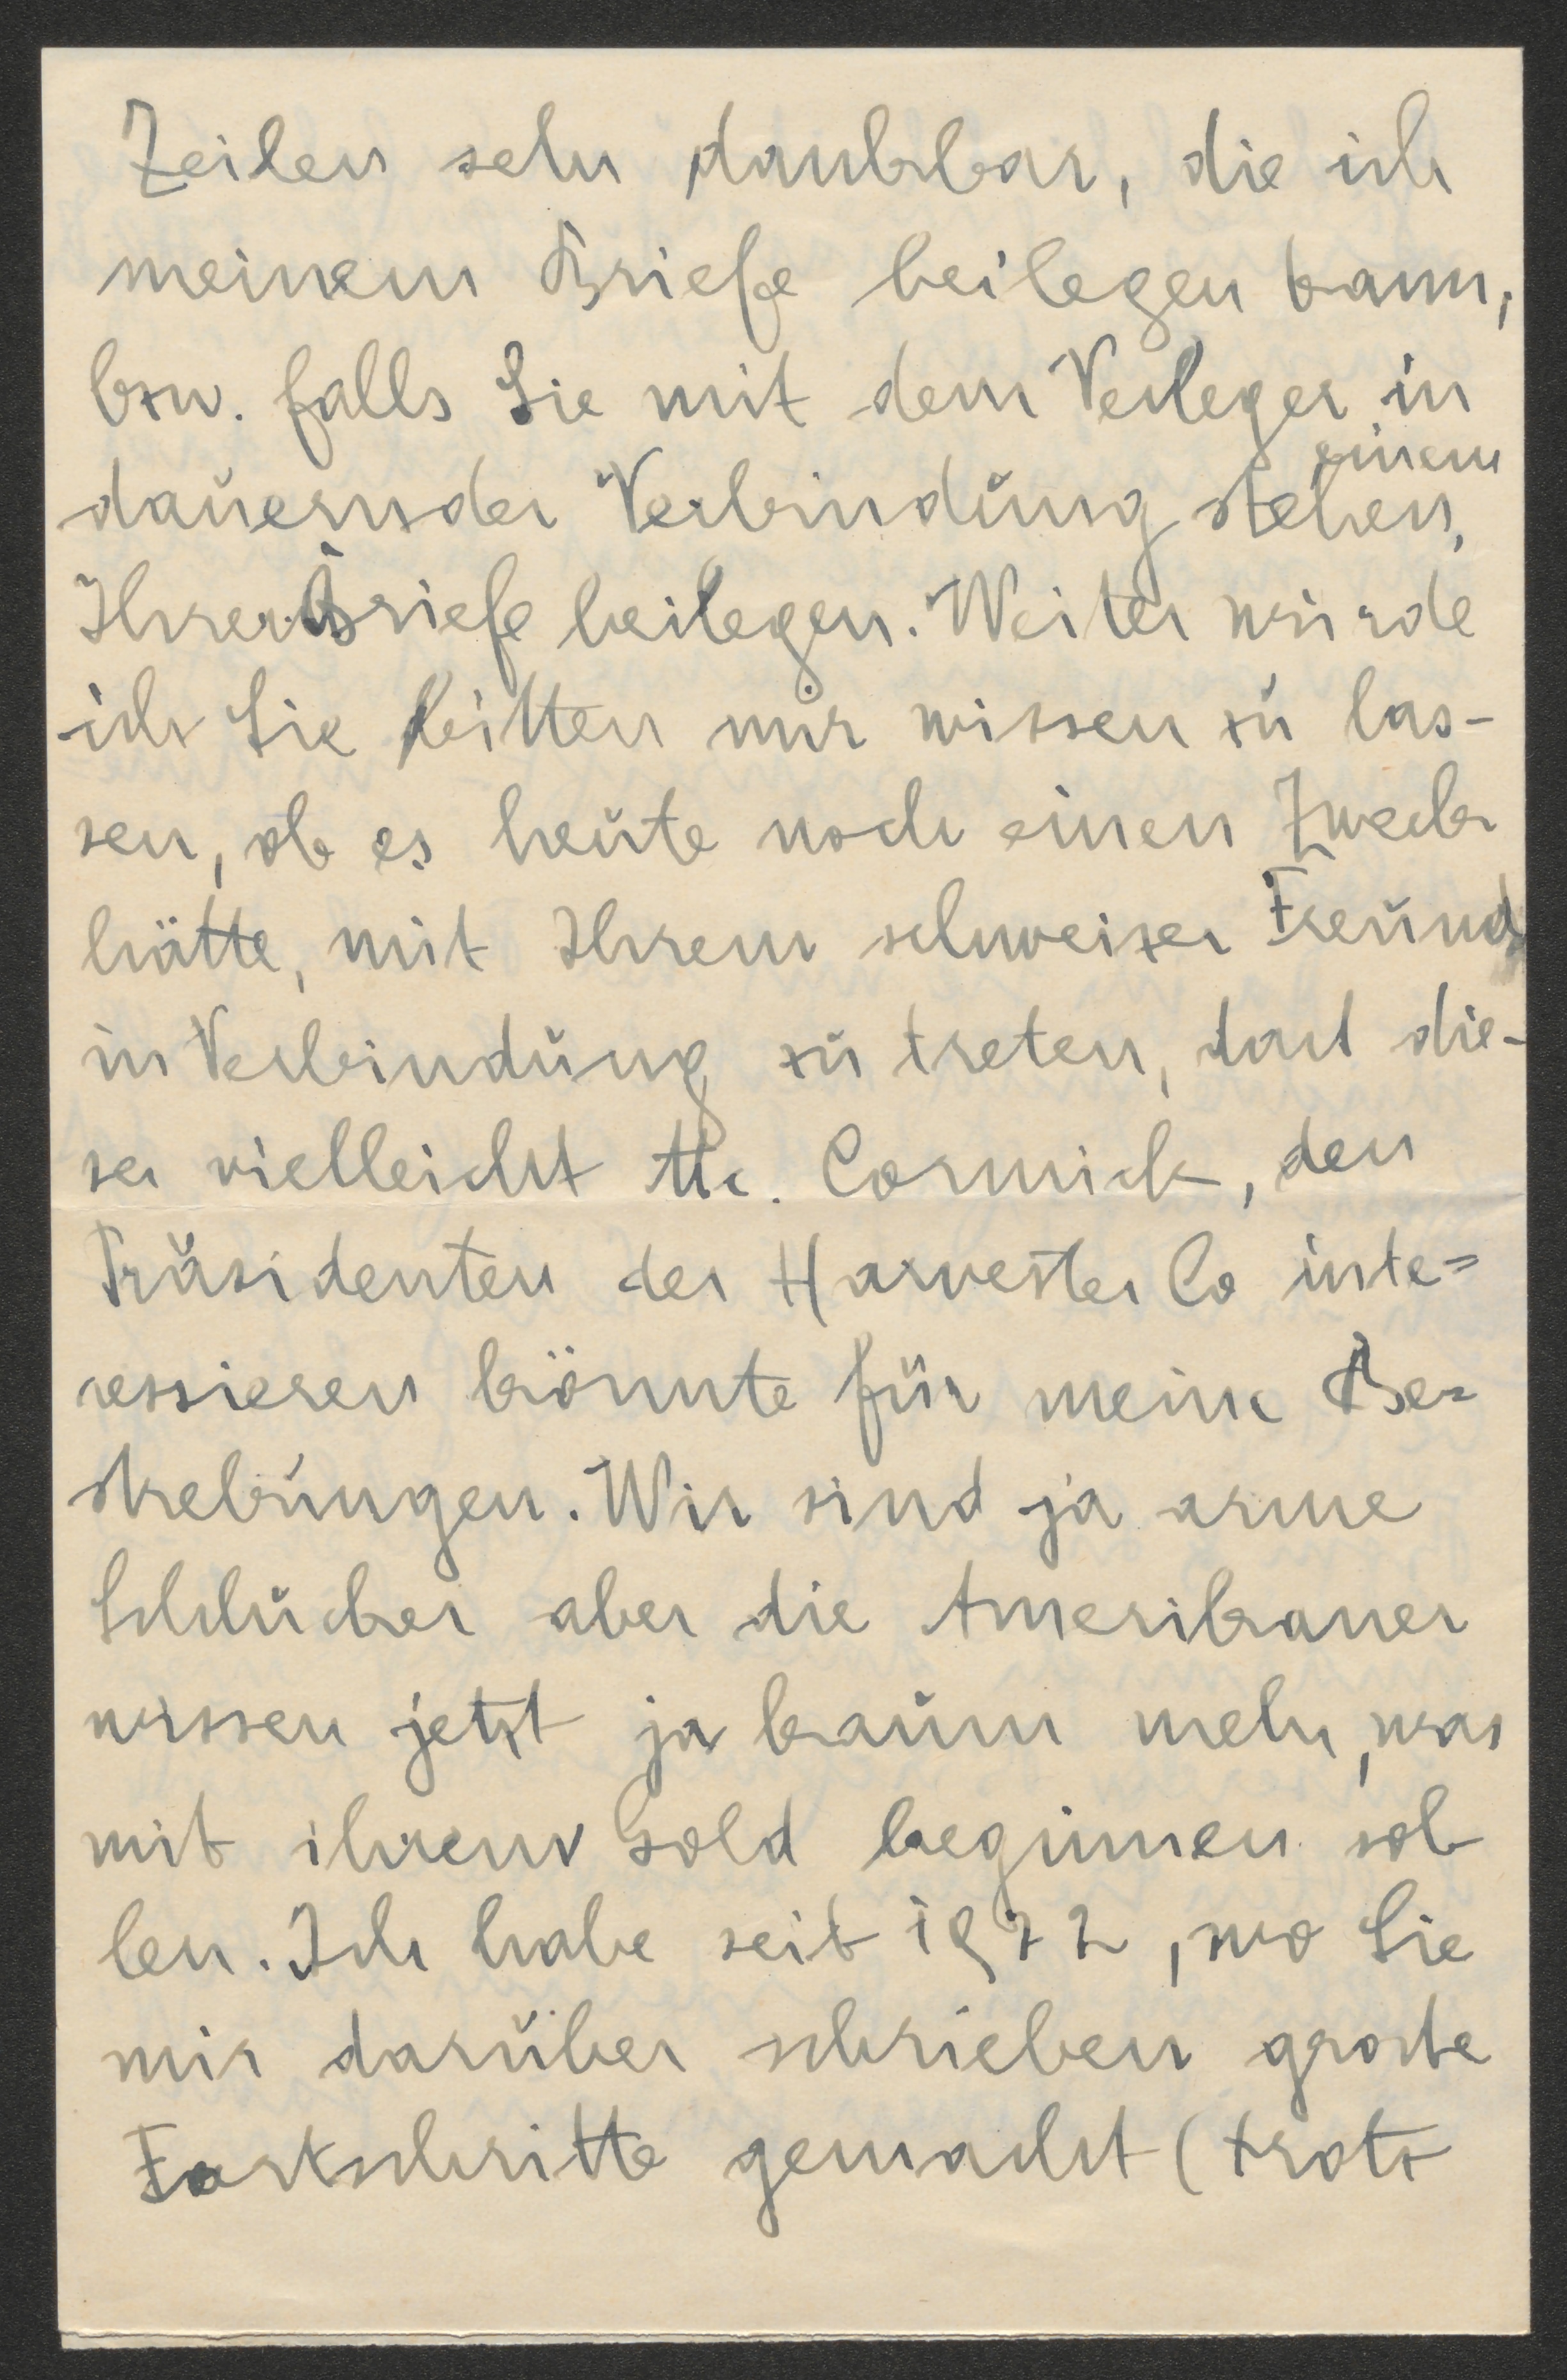 Zeilen sehr dankbar, die ich
meinem Briefe beilegen kann,
bzw. falls Sie mit dem Verleger in
dauernder Verbindung stehen,
einem
Ihrer Briefe beilegen. Weiter würde
ich Sie bitten mir wissen zu las-
sen, ob es heute noch einen Zweck
hätte, mit Ihrem schweizer Freund
in Verbindung zu treten, dass die-
ser vielleicht Mc. Cormick, den
Präsidenten der Harvester Co inte=
ressieren könnte für meine Be=
strebungen. Wir sind ja arme
Schlucker aber die Amerikaner
wissen jetzt ja kaum mehr, was
mit ihrem Gold beginnen sol
len. Ich habe seit 1922, wo Sie
mir darüber schrieben grosse
Fortschritte gemacht (trotz